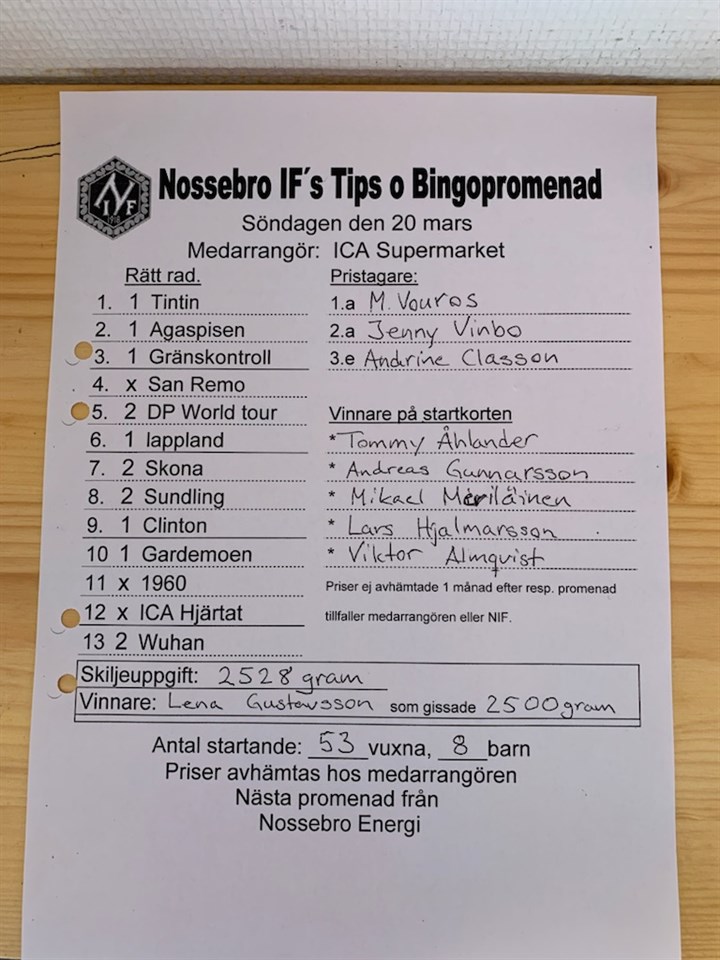 Nossebro IF´s Tips o Bingopromenad
N I F
1918
Söndagen den 20 mars
Medarrangör: ICA Supermarket
Rätt rad.
1. 1 Tintin
2. 1 Agaspisen
3. 1 Gränskontroll
4. x San Remo
5. 2 DP World tour
6. 1 lappland
7. 2 Skona
8. 2 Sundling
9. 1 Clinton
10 1 Gardemoen
11 x 1960
12 x ICA Hjärtat
13 2 Wuhan
Pristagare:
1.a M. Vouros
2.a Jenny Vinbo
3.e Andrine Classon
Vinnare på startkorten
* Tommy Åhlander
* Andreas Gunnarsson
* Mikael Meriläinen
* Lars Hjalmarsson
* Viktor Almqvist
Priser ej avhämtade 1 månad efter resp. promenad
tillfaller medarrangören eller NIF.
Skiljeuppgift: 2528 gram
Vinnare: Lena Gustavsson som gissade 2500 gram
Antal startande: 53 vuxna, 8 barn
Priser avhämtas hos medarrangören
Nästa promenad från
Nossebro Energi